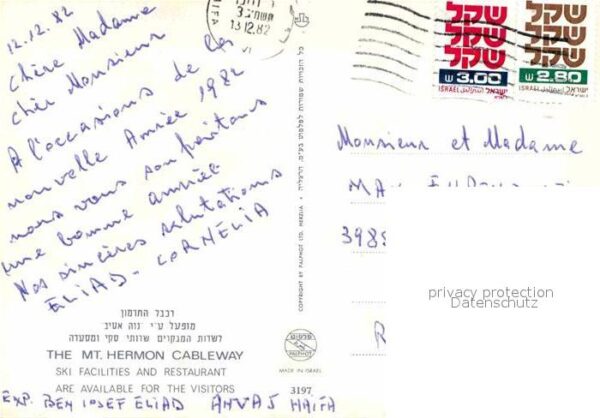 12.12.82
Chère Madame
cher Monsieur
A l'occasions de la
nouvelle Année 1982
nous vous souheitons
une bonne année
Nos sincères salutations
ELIAD - CORNELIA
רכבל החרמון
מופעל ע"י נוה אטיב
לשרות המבקרים שרותי סקי ומסעדה
THE MT. HERMON CABLEWAY
SKI FACILITIES AND RESTAURANT
ARE AVAILABLE FOR THE VISITORS
EXP. BEN IOSEF ELIAD HAIFA
3197
כל הזכויות שמורות לפלפוט בע"מ, הרצליה
COPYRIGHT BY PALPHOT LTD. HERZLIA
פלפוט
PALPHOT
MADE IN ISRAEL
13.12.82
שקל
שקל
שקל
3.00
ישראל ISRAEL
שקל
שקל
שקל
2.80
ישראל ISRAEL
Monsieur et Madame
398
R
privacy protection
Datenschutz